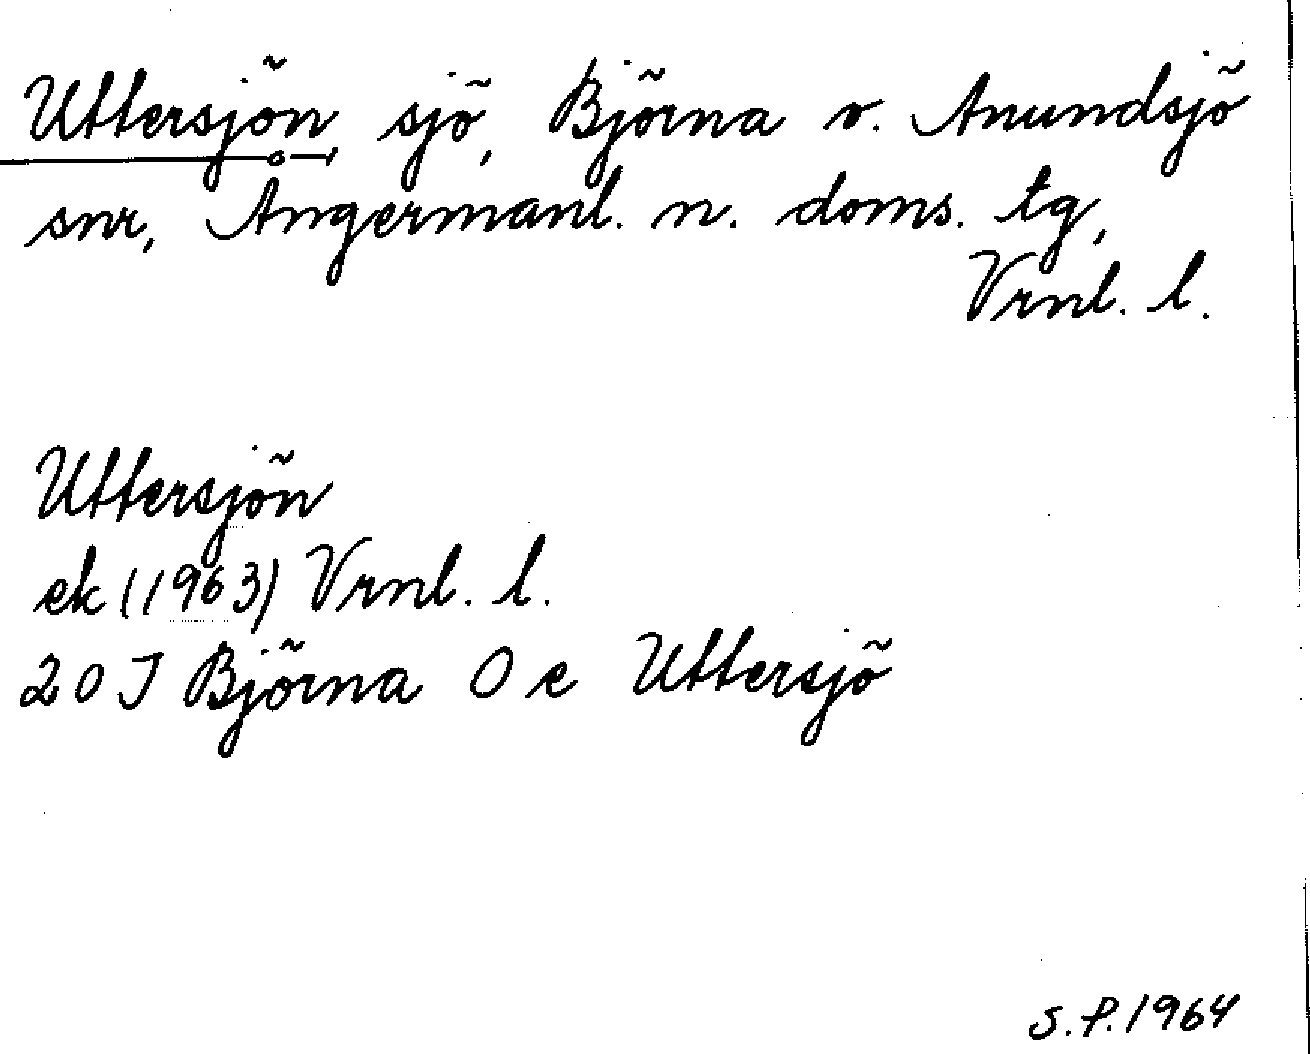 Uttersjön, sjö, Björna o. Anundsjö
snr, Ångermanl. n. doms. tg,
Vrnl. l.
Uttersjön
ek (1963) Vrnl. l.
20 J Björna O e Uttersjö
S.P. 1964